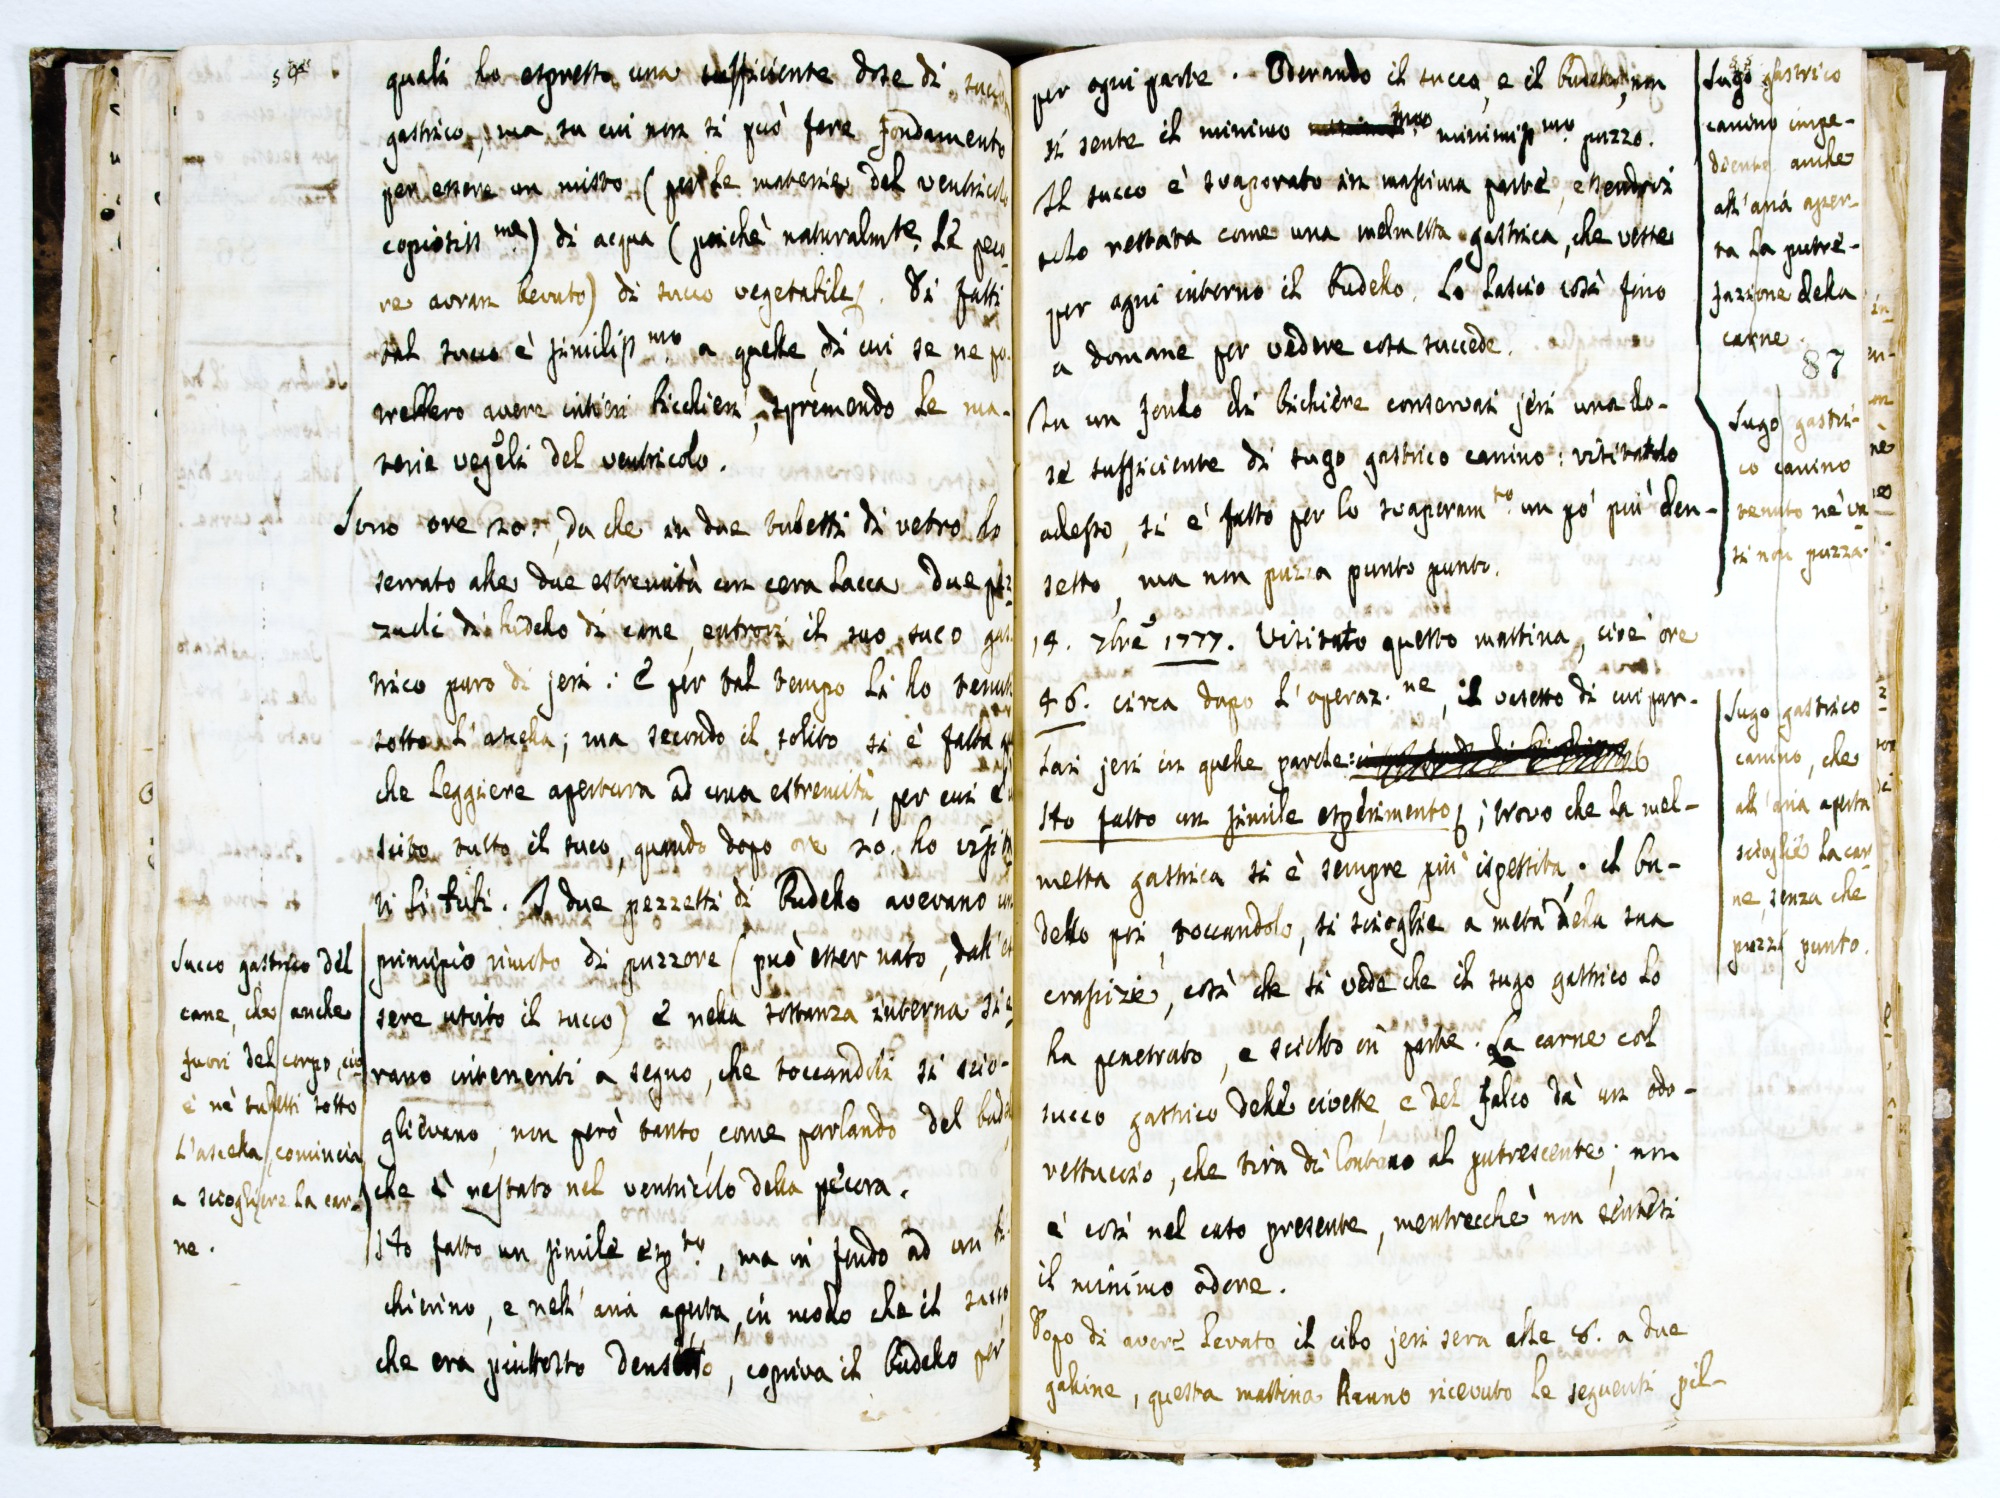 54
quali ho espresso una sufficiente dose di succo
gastrico, ma su cui non si può fare fondamento
per essere un misto (per le materie del ventricolo
copiosiss.me) di acqua (poichè naturalmte. le peco-
re avran bevuto) di succo vegetabile. Di fatti
tal succo è similiss.mo a quelle, di cui se ne po-
trebbero avere intieri bicchieri, spremendo le ma-
terie vegeli del ventricolo.
Sono ore 20., da che in due tubetti di vetro ho
serrato alle due estremità con cera lacca due pez-
zuoli di budello di cane, entrovi il suo suco gas-
trico puro di jeri: e per tal tempo li ho tenuti
sotto l'ascella; ma secondo il solito si è fatta
che leggiere apertura ad una estremità, per cui è u
scito tutto il suco, quando dopo ore 20. ho visita
ti li tubi. I due pezzetti di Budello avevano un
principio rimoto di puzzore (può esser nato, dall'es
sere uscito il succo) e nella sostanza interna si e
rano inteneriti a segno, che toccandoli si scio-
glievano, non però tanto, come parlando del bude
che è restato nel ventricolo della pecora.
Ho fatto un simile esp.to, ma in fondo ad un bi-
chierino, e nell'aria aperta, in modo che il succo
che era piuttosto denso, copriva il budello per
Succo gastrico del
cane, che anche
fuori del corpo, cio
è nè tubetti sotto
l'ascella, comincia
a sciogliere la car-
ne.
55
per ogni parte. Odorando il succo, e il budello, non
si sente il minimo minimiss.mo puzzo.
Il succo è svaporato in massima parte, essendovi
solo restata come una melmetta gastrica, che veste
per ogni intorno il budello. Lo lascio così fino
a domane per vedere cosa succede.
In un fondo di bichiere conservai jeri una do-
se sufficiente di sugo gastrico canino: visitatolo
adesso, si è fatto per lo svaporam.to un pó più den-
setto, ma non puzza punto punto.
14. 7bre 1777. Visitato questo mattina, cioè ore
46. circa dopo l'operaz.ne, il vesetto di cui par-
lai jeri in quelle parole:
Ho fatto un simile esperimento; trovo che la mel-
metta gastrica si è sempre più ispessita. il bu-
dello poi, toccandolo, si scioglie a metà della sua
crassizie, così che si vede che il sugo gastrico lo
ha penetrato, e sciolto in parte. La carne col
succo gastrico delle civette, e del falco dà un odo-
rettuccio, che tira di lontano al putrescente; non
è così nel caso presente, mentrecchè non sentesi
il minimo odore.
Dopo di avere levato il cibo jeri sera alle 8. a due
galine, questa mattina hanno ricevuto le seguenti pil-
Sugo gastrico
canino impe-
diente anche
all'aria aper-
ta la putre-
fazione della
carne.
87
Sugo gastri-
co canino
tenuto nè va
si non puzza.
Sugo gastrico
canino, che
all'aria aperta
scioglie la car
ne, senza che
puzzi punto.